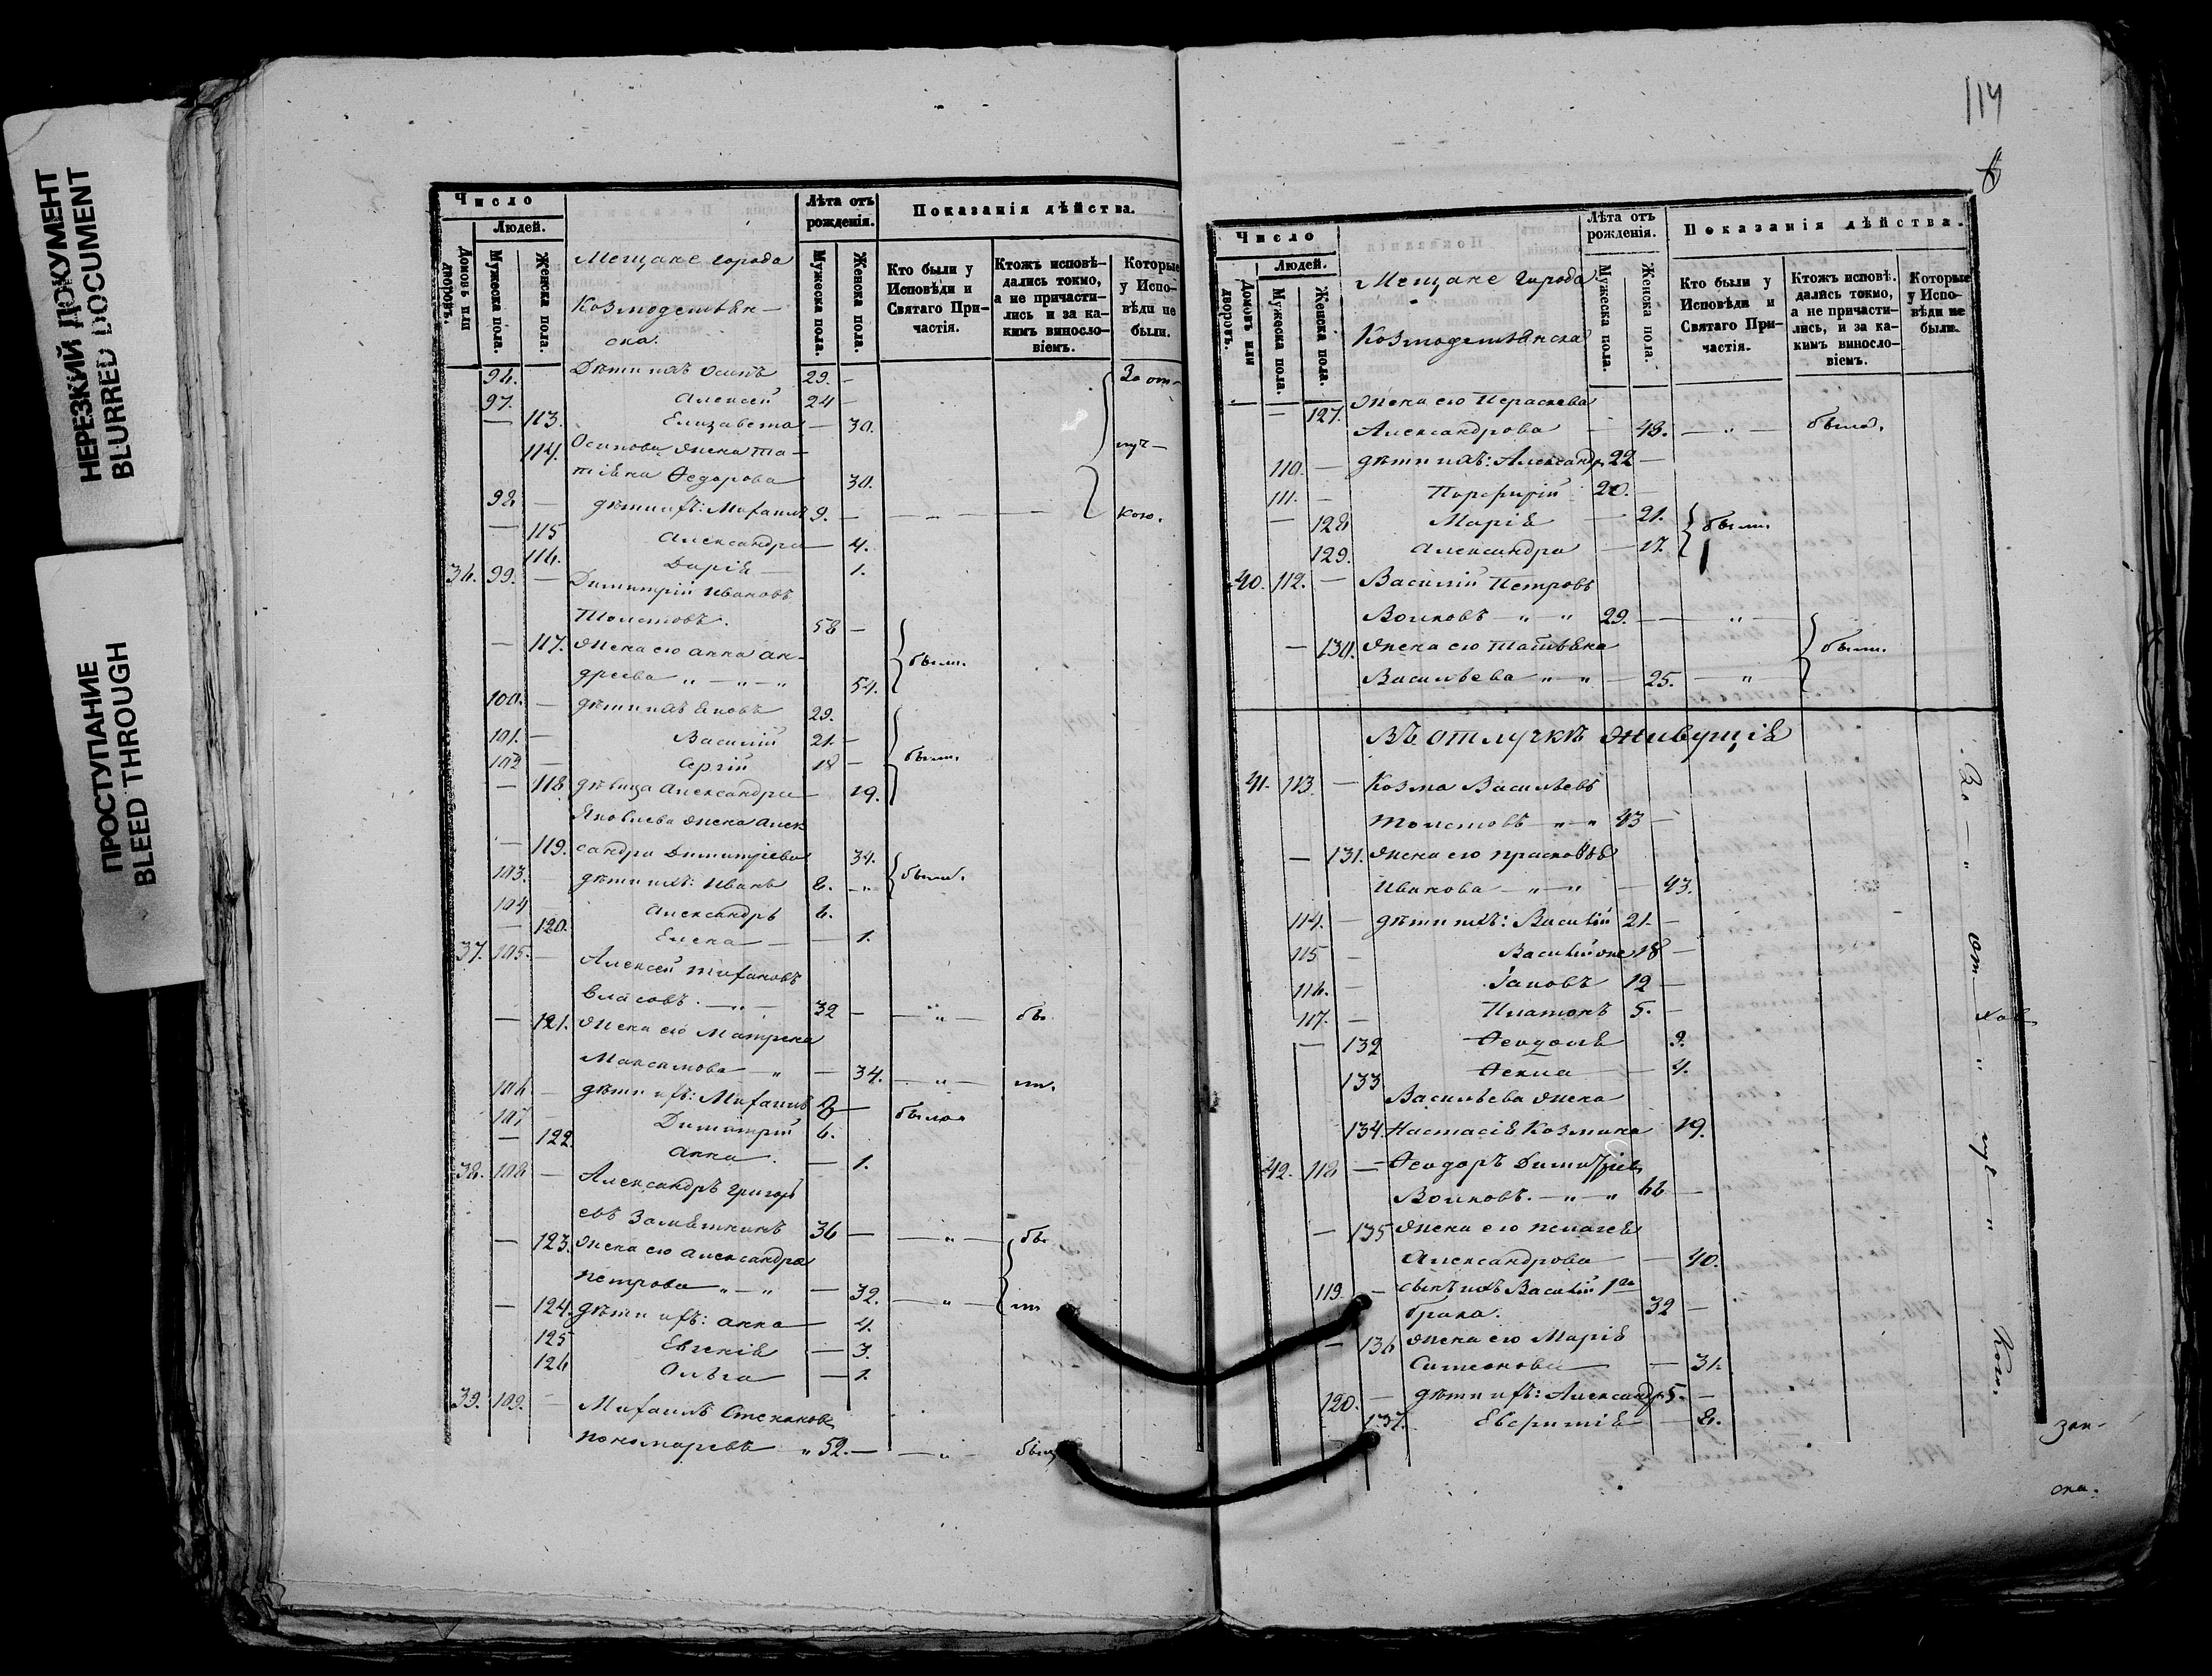 НЕРЕЗКИЙ ДОКУМЕНТ
BLURRED DOCUMENT
ПРОСТУПАНИЕ
BLEED THROUGH
Число
Людей.
Домовъ или дворовъ.
Мужеска пола.
Женска пола.
Мещане города
Козмодемьян-
ска.
Лѣта отъ рожденія.
Мужеска пола.
Женска пола.
Показанія дѣйства.
Кто были у Исповѣди и Святаго Причастія.
Ктожъ исповѣ-
дались токмо,
а не причасти-
лись и за ка-
кимъ виносло-
віемъ.
Которые
у Испо-
вѣди не
были.
96. Дѣти ихъ Осипъ 29. — За от-
97. Алексей 24 —
— 113. Елизавета — 30.
114. Осипова жена Та- луч-
тіяна Ѳедорова 30.
98 — дѣти ихъ: Михаилъ 9. — кою.
— 115 Александра — 4.
116. Дарія — 1.
36. 99. — Димитрій Ивановъ
Толстовъ. 58 —
— 117. Жена его Анна Ан-
дреева 54. были.
100. — дѣти ихъ Яковъ 29.
101. — Василій 21. —
102 — Сергій 18 — были.
— 118 дѣвица Александра — 19.
Яковлева жена Алек
— 119. сандра Димитріева 34.
103. дѣти ихъ: Иванъ 8. были.
104 Александръ 6.
— 120. Елена — 1.
37. 105. — Алексей
Власовъ. 32 — бы-
— 121. Жена его Матрена
Максимова — 34. ли.
106 — дѣти ихъ: Михаилъ 8 —
107 — Димитрій 6. были
— 122 Анна — 1.
38. 108 — Александръ Григорь
евъ 36 — бы-
— 123. Жена его Александра
Петрова — 32. ли
— 124. дѣти ихъ: Анна — 4.
125 Евгенія — 3.
126 Ольга — 1.
39. 109. — Михаилъ Степановъ
Пономаревъ 52. — былъ
114
Число
Людей.
Домовъ или дворовъ.
Мужеска пола.
Женска пола.
Мещане города
Козмодемьянска
Лѣта отъ рожденія.
Мужеска пола.
Женска пола.
Показанія дѣйства.
Кто были у
Исповѣди и
Святаго При-
частія.
Ктожъ исповѣ.
дались токмо,
а не причасти-
лись, и за ка-
кимъ виносло-
віемъ.
Которые
у Испо-
вѣди не
были.
— 127. Жена его Пераскева
Александрова — 48. была.
110. — дѣти ихъ: Александръ 22 —
111. — Порфирій 20. —
— 128 Марія — 21. были.
129. Александра — 17.
40. 112. — Василій Петровъ
Волковъ 29. —
— 130. Жена его Татіяна были.
Васильева — 25.
Въ отлучкѣ живущія
41. 113. — Козма Васильевъ
Толстовъ 43 —
— 131. Жена его Прасковья
Иванова — 43.
114. — дѣти ихъ: Василій 21. —
115 — Василій же 18 —
116. — Іаковъ 12 —
117. — Платонъ 5. —
— 132 9.
133 Ѳекла — 4.
Васильева жена
134. Настасія Козмина 19.
42. 118 — Ѳеодоръ Димитріев
Волковъ. 66 —
— 135 Жена его Пелагея
Александрова — 40.
119. — сынъ ихъ Василій 1го
брака. 32 —
— 136 Жена его Марія
Симеонова — 31.
120. — дѣти ихъ: Александръ 5. —
137. — 8.
За от луч кою.